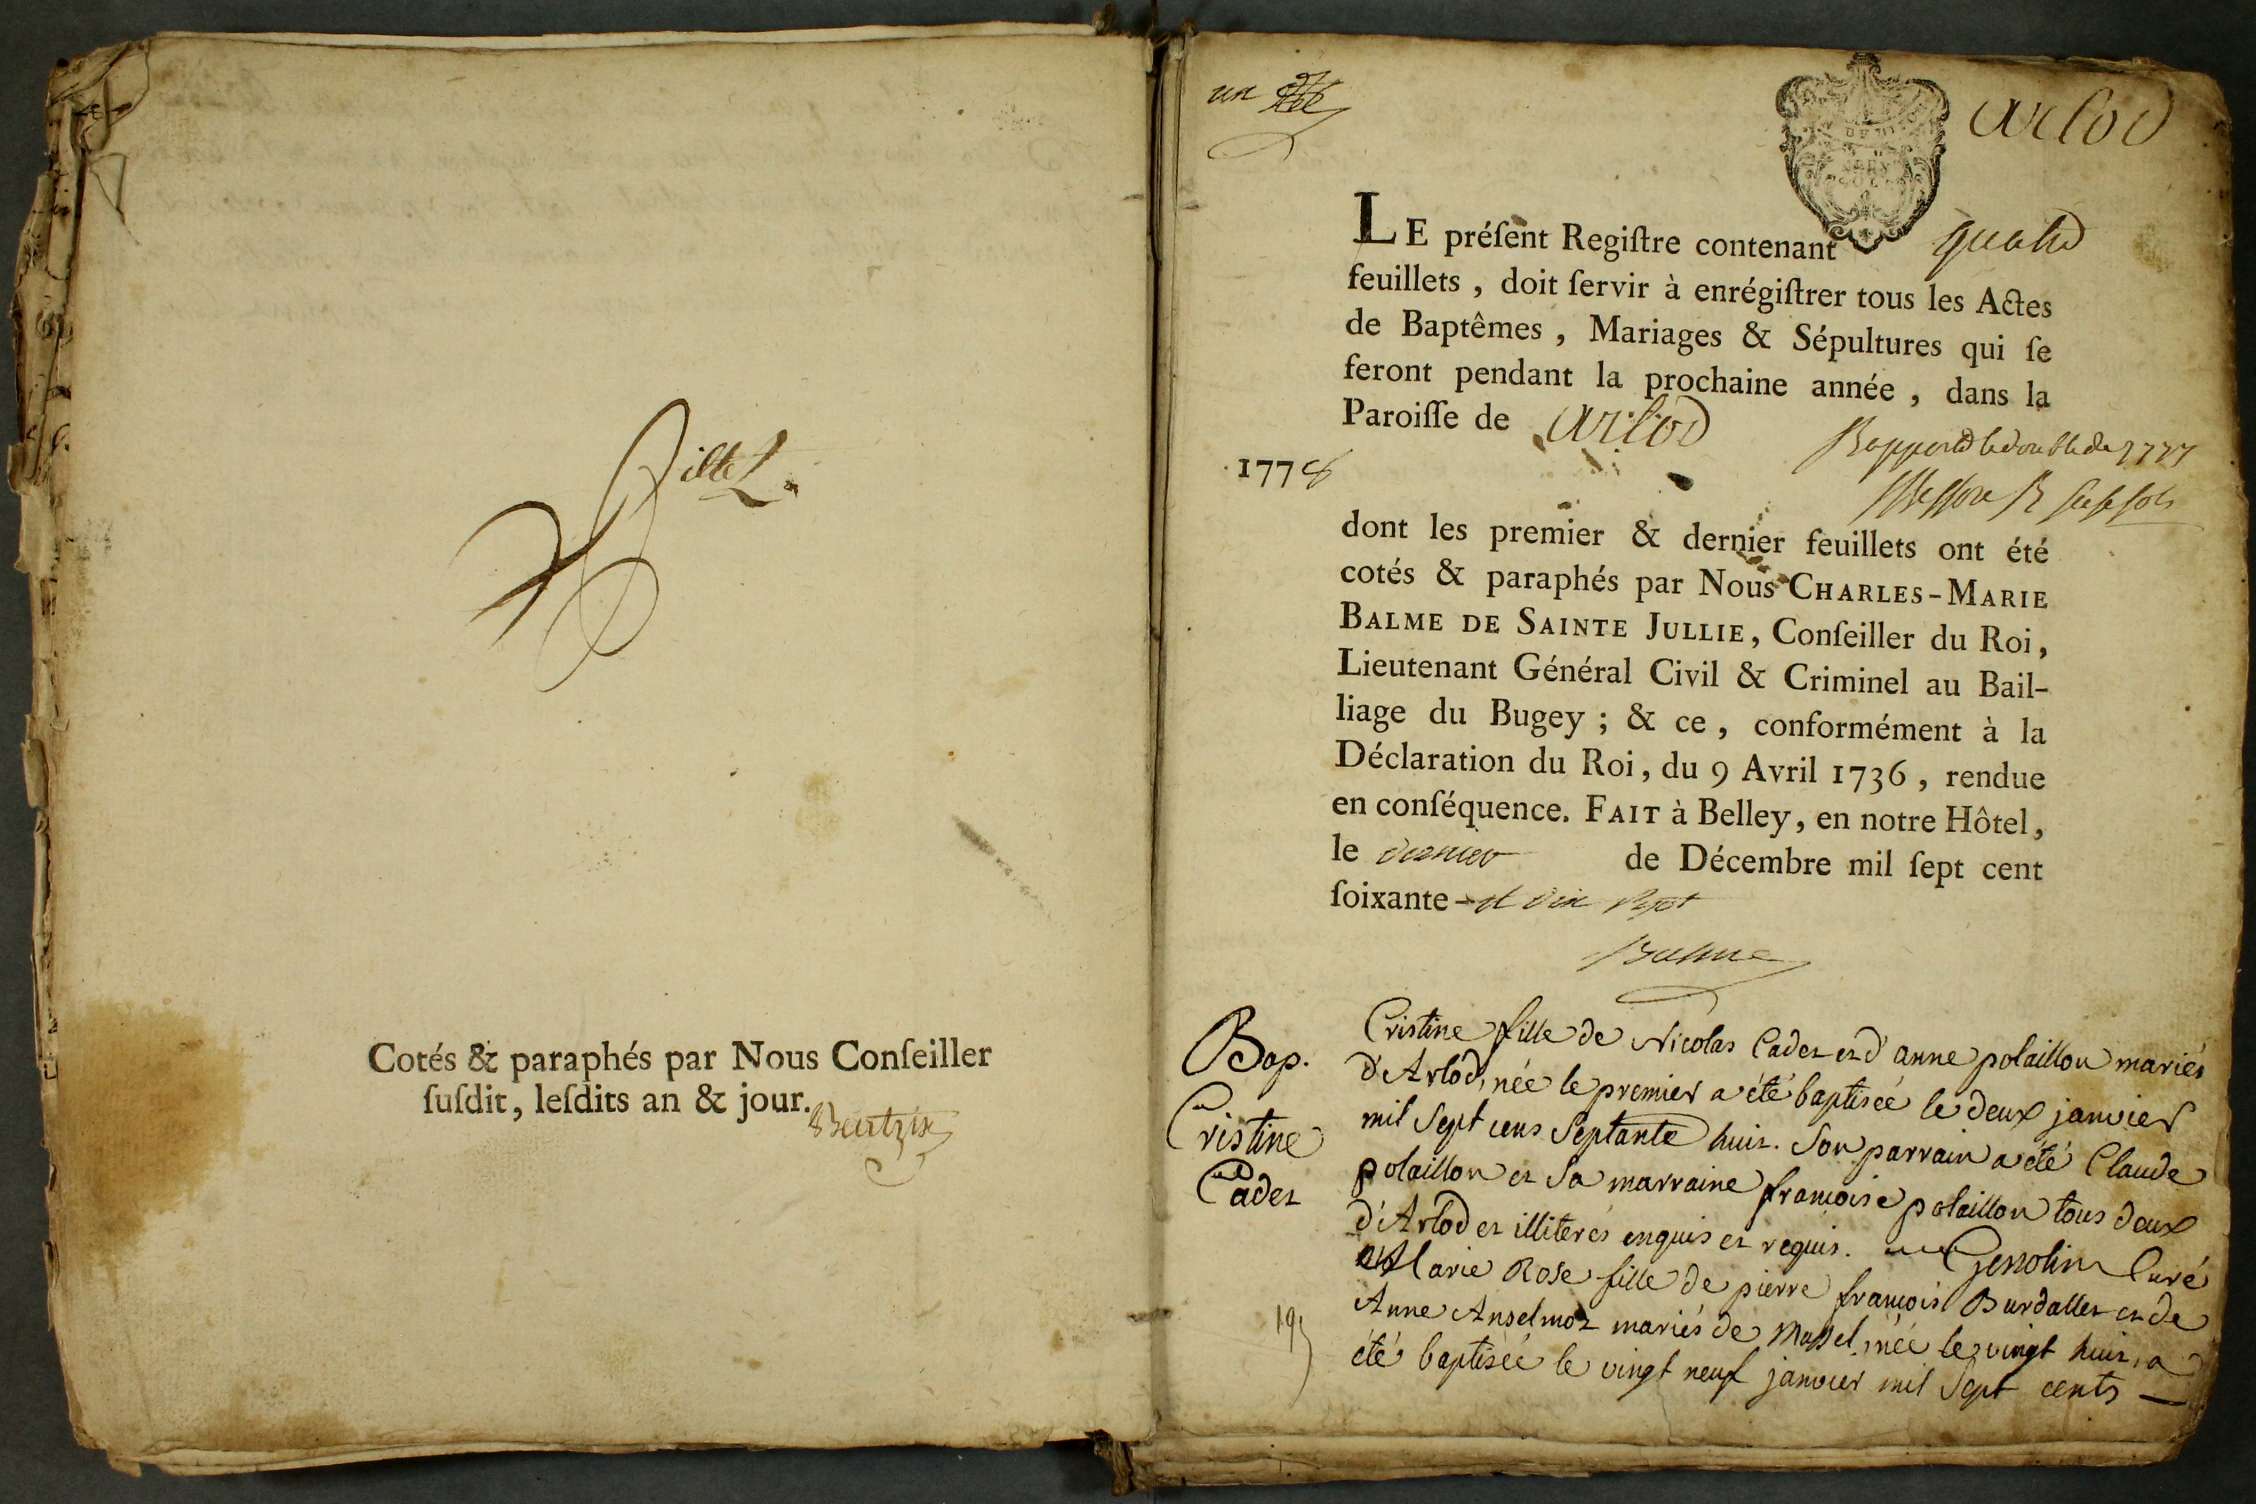 Billet
Cotés & paraphés par Nous Conſeiller
ſuſdit, leſdits an & jour.
un
Arlod
LE préſent Regiſtre contenant quatre
feuillets, doit ſervir à enrégiſtrer tous les Actes
de Baptêmes, Mariages & Sépultures qui ſe
feront pendant la prochaine année, dans la
Paroiſſe de Arlod
Rapporté le double de 1777
1778
dont les premier & dernier feuillets ont été
cotés & paraphés par Nous CHARLES-MARIE
BALME DE SAINTE JULLIE, Conſeiller du Roi,
Lieutenant Général Civil & Criminel au Bail-
liage du Bugey; & ce, conformément à la
Déclaration du Roi, du 9 Avril 1736, rendue
en conſéquence. FAIT à Belley, en notre Hôtel,
le dernier de Décembre mil ſept cent
ſoixante - et dix sept
Balme
Bap.
Cristine
Cadet
Cristine fille de Nicolas Cadet et d'anne polaillon mariés
d'Arlod, née le premier a été baptisée le deux janvier
mil sept cens septante huit. Son parrain a été Claude
polaillon et sa marraine françoise polaillon tous deux
d'Arlod et illiterés enquis et requis. Genolin Curé
Marie Rose fille de pierre françois Burdallet et de
Anne Anselmoz mariés de Mussel, née le vingt huit, a
été baptisée le vingt neuf janvier mil sept cents